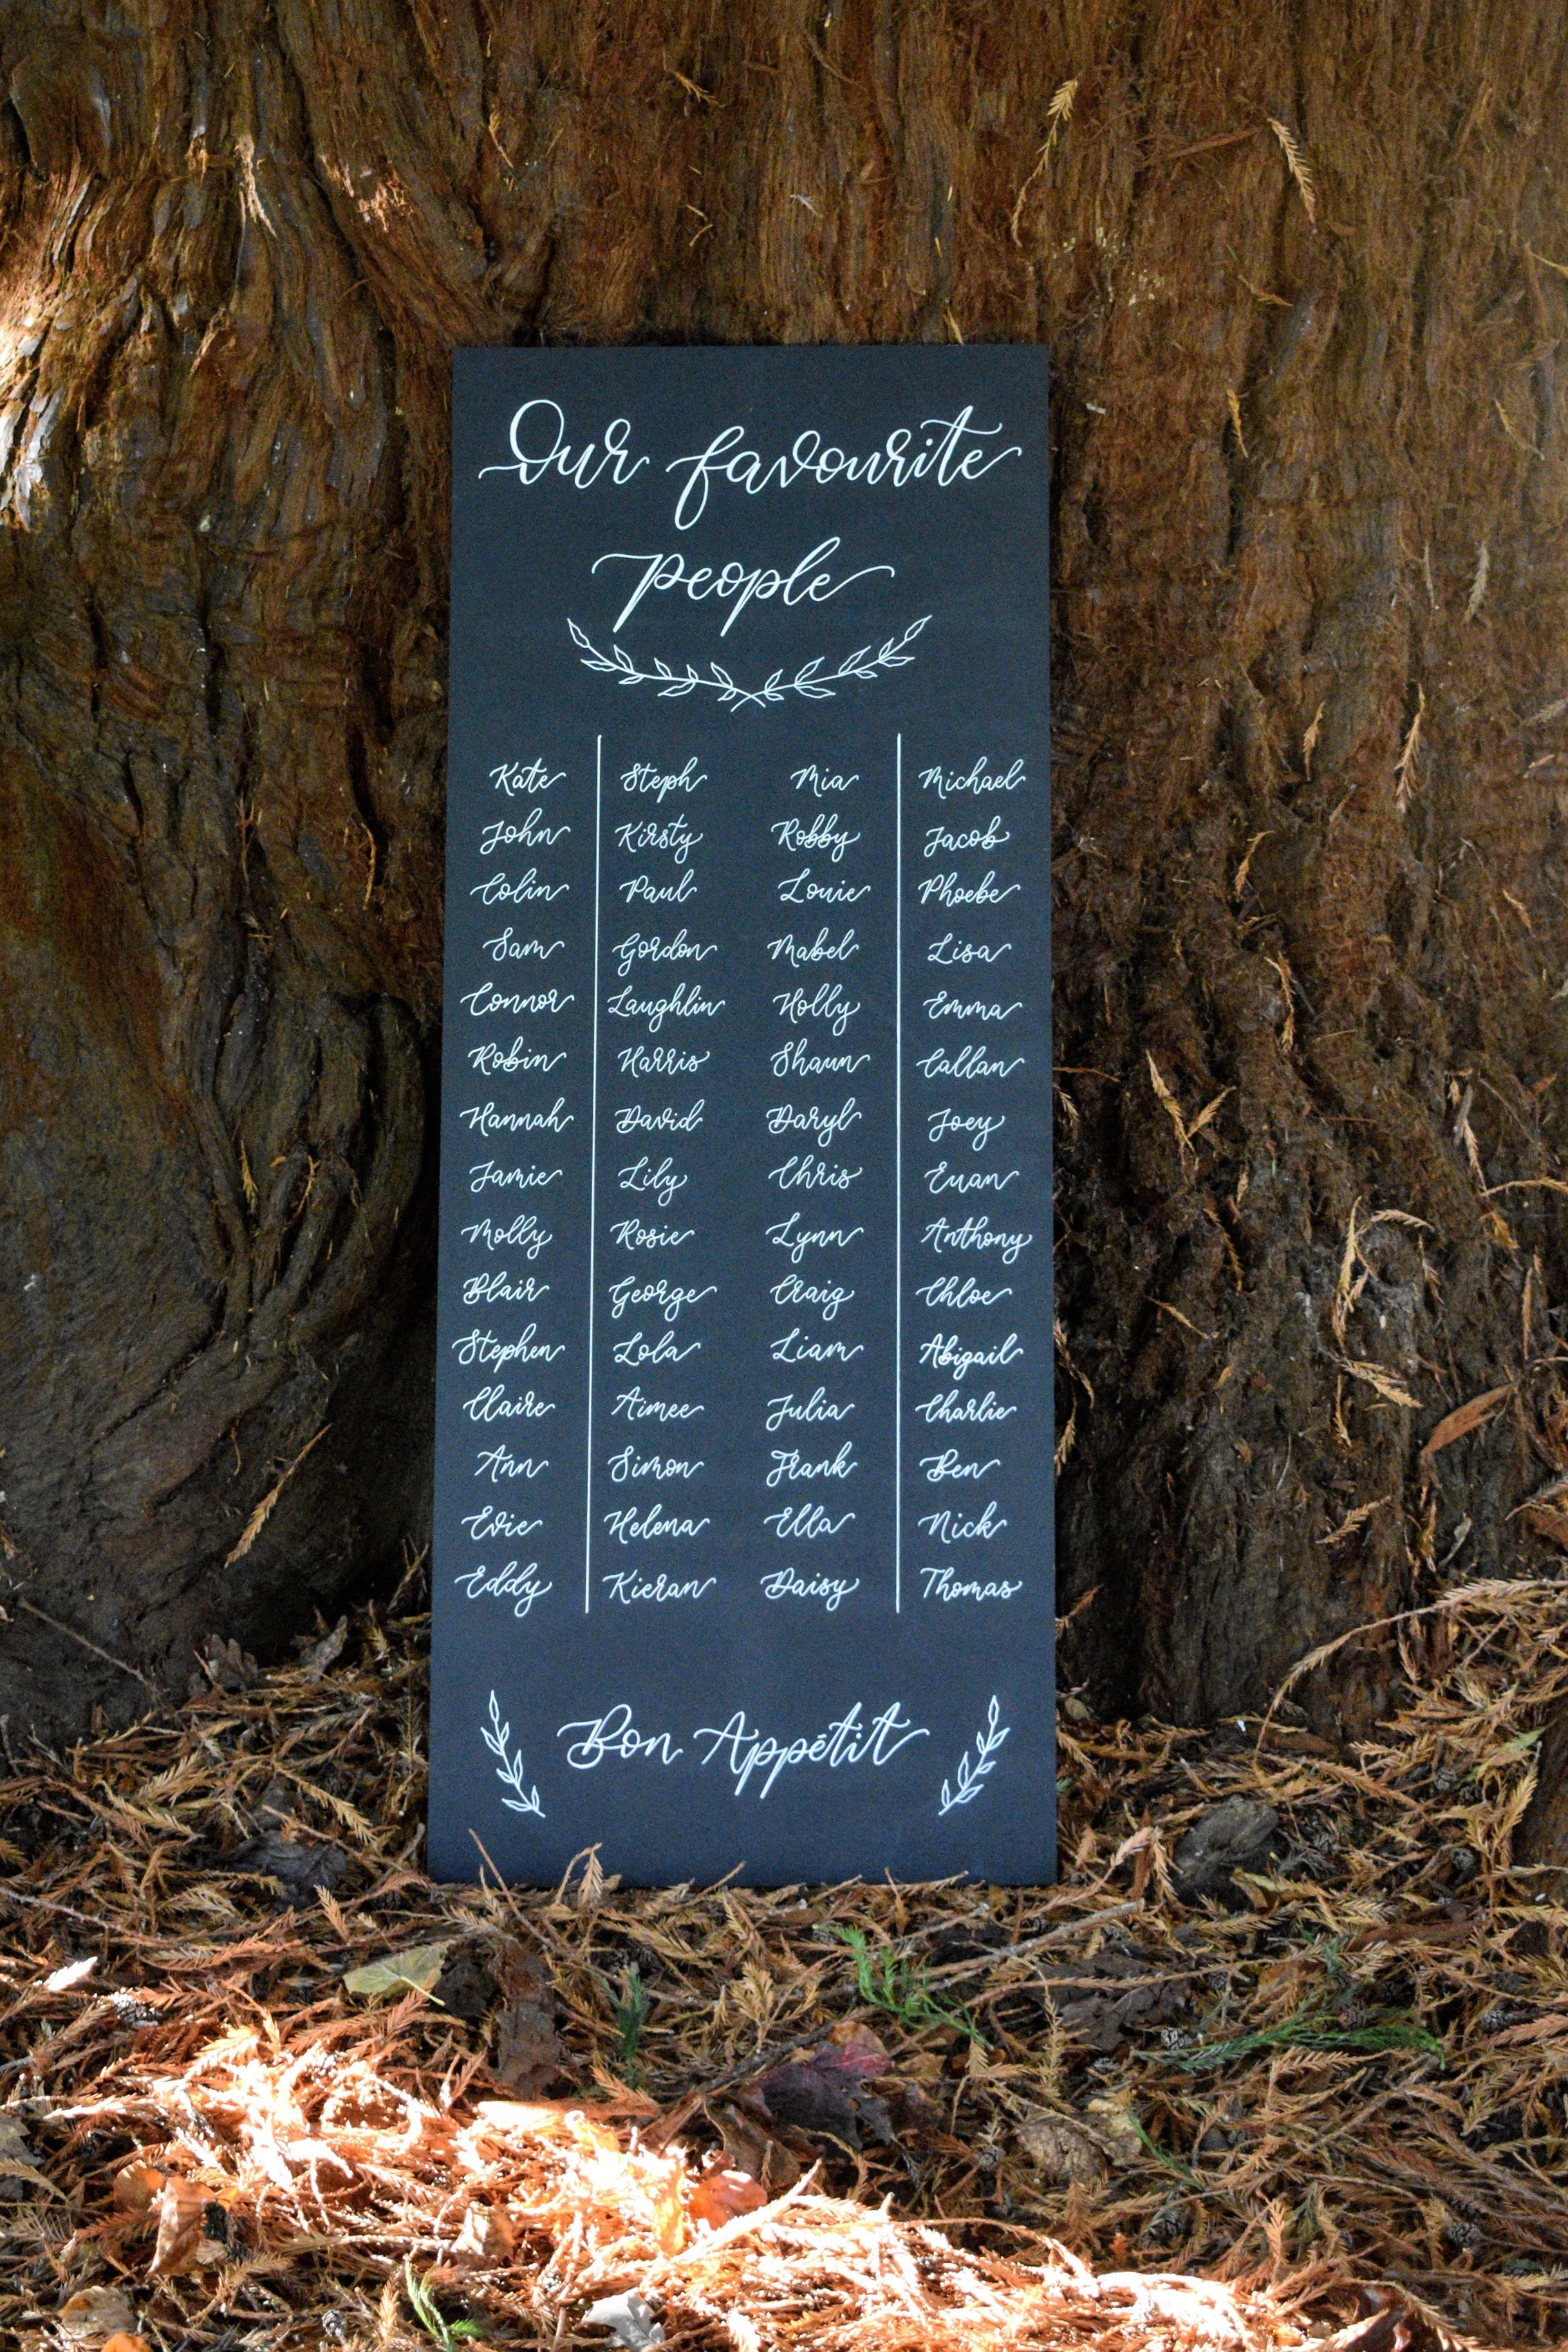 Our favourite
people
Kate Steph Mia Michael
John Kirsty Robby Jacob
Colin Paul Louie Phoebe
Sam Gordon Mabel Lisa
Connor Laughlin Holly Emma
Robin Harris Shaun Callan
Hannah David Daryl Joey
Jamie Lily Chris Euan
Molly Rosie Lynn Anthony
Blair George Craig Chloe
Stephen Lola Liam Abigail
Claire Aimee Julia Charlie
Ann Simon Frank Ben
Evie Helena Ella Nick
Eddy Kieran Daisy Thomas
Bon Appétit